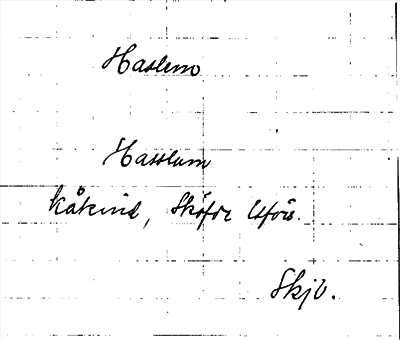 Haslem
Hasslum
Kåkind, Sköfde Upförs.
Skjb.